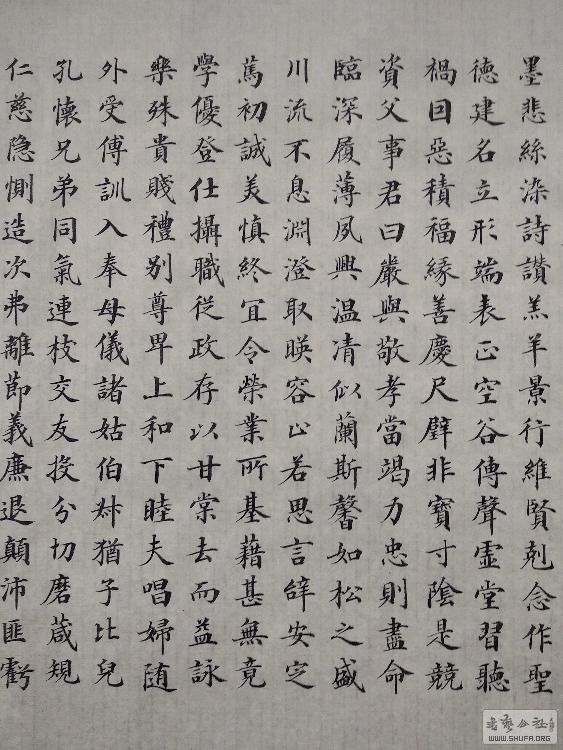 墨悲絲染詩讃羔羊景行維賢剋念作聖
德建名立形端表正空谷傳聲虛堂習聽
禍因惡積福緣善慶尺璧非寶寸陰是競
資父事君曰嚴與敬孝當竭力忠則盡命
臨深履薄夙興温凊似蘭斯馨如松之盛
川流不息淵澄取暎容止若思言辝安定
篤初誠美慎終宜令榮業所基藉甚無竟
學優登仕攝職從政存以甘棠去而益詠
樂殊貴賤禮别尊卑上和下睦夫唱婦随
外受傅訓入奉母儀諸姑伯叔猶子比兒
孔懷兄弟同氣連枝交友投分切磨葴規
仁慈隐惻造次弗離節義廉退顛沛匪虧
書藝公社
WWW.SHUFA.ORG